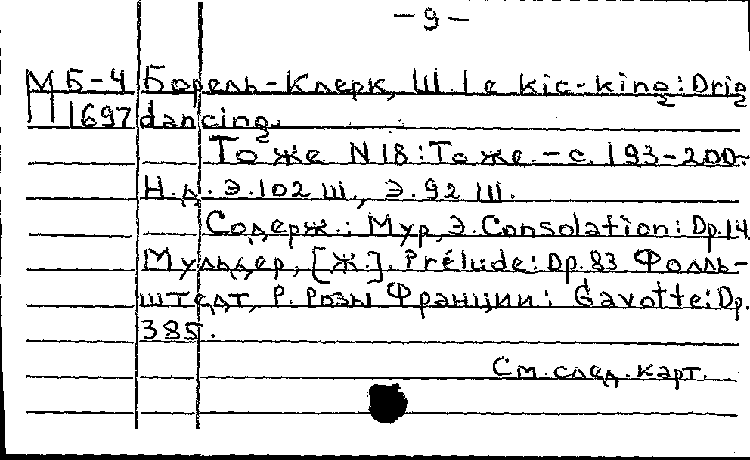 - 9 -
М Б-4 Борель-Клерк, Ш. Le kic-king: Drig
П 1697 dancing.
То же N 18: То же. - с. 193-200.
Н.д. Э. 102 Ш., Э. 92 Ш.
Содерж.: Мур, Э. Consolation: Op. 14
Мульдер, [Ж.]. Prélude: Op. 83 Фолль-
штедт, Р. Розы Франции: Gavotte: Op.
385.
См. след. карт.